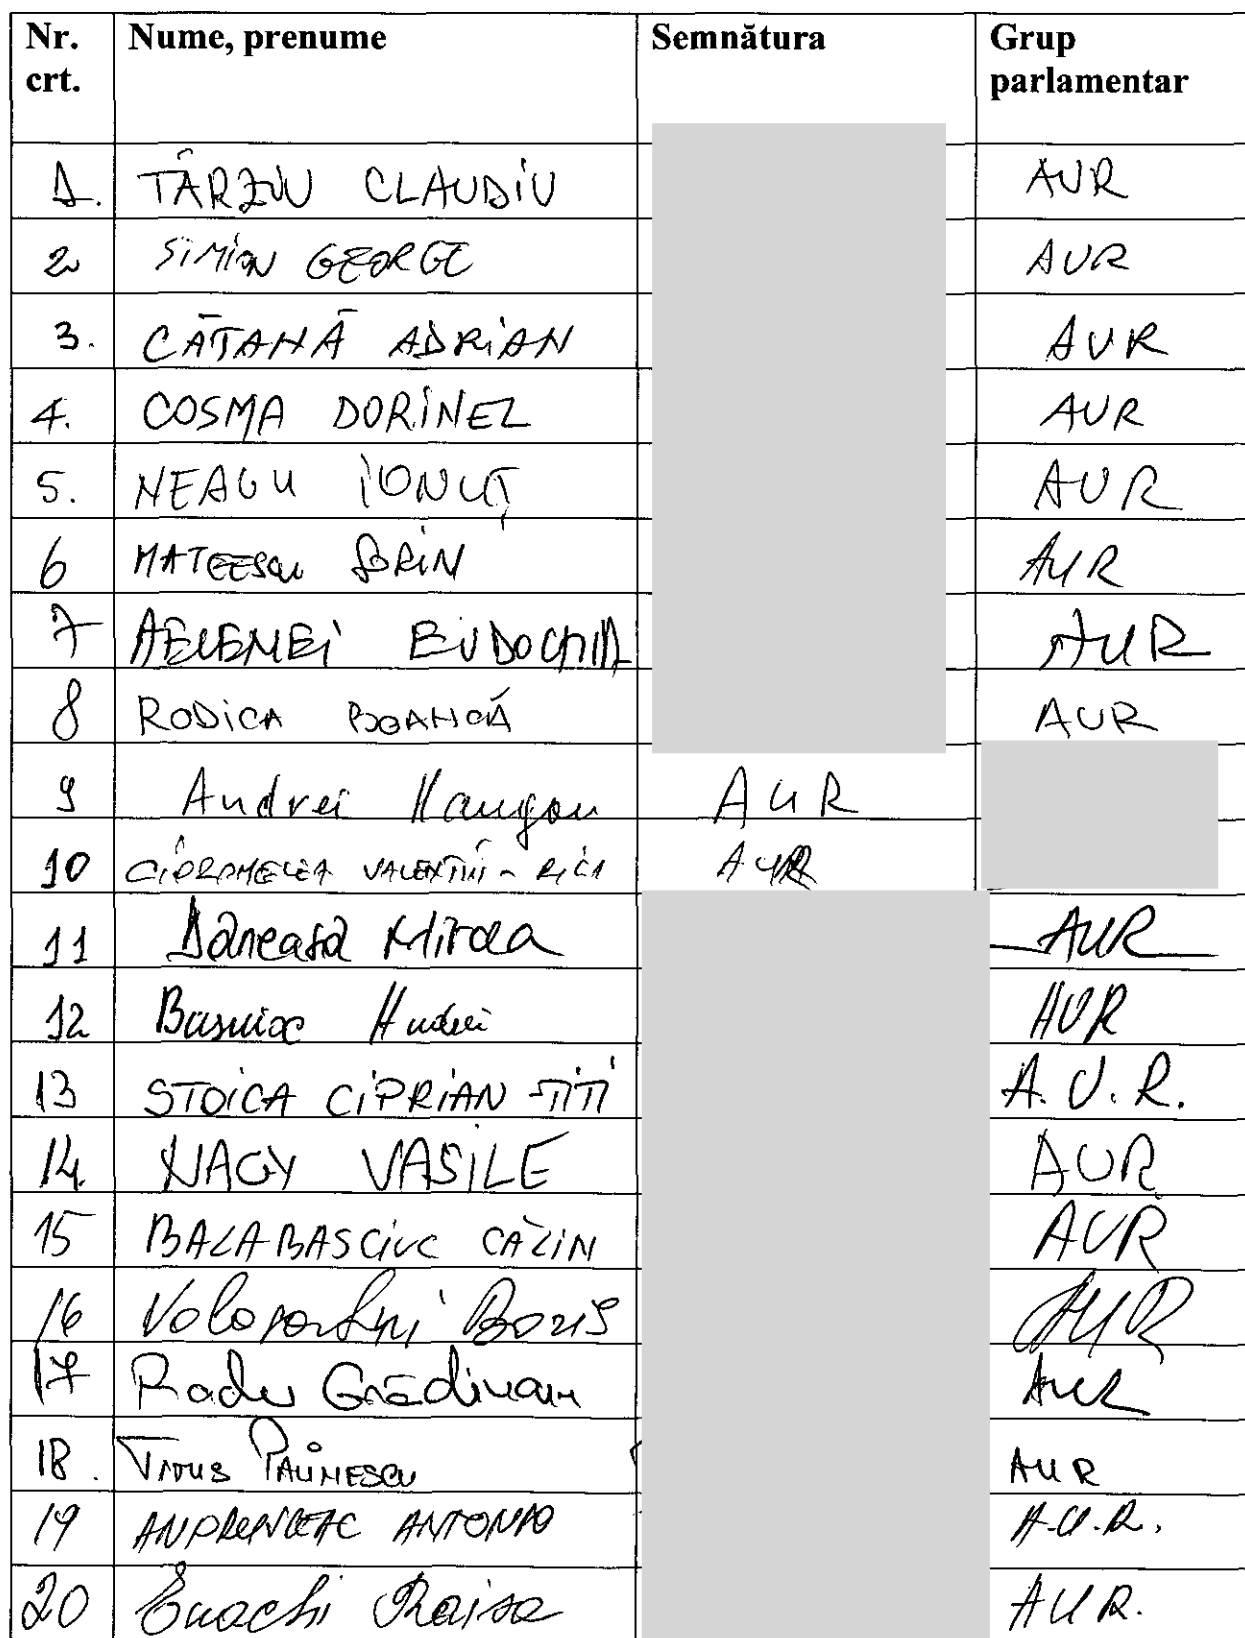 Nr. crt. Nume, prenume Semnătura Grup parlamentar
1. TÂRZIU CLAUDIU AUR
2 SIMION GEORGE AUR
3. CĂTANĂ ADRIAN AUR
4. COSMA DORINEL AUR
5. NEAGU IONUȚ AUR
6 MATEESCU SORIN AUR
7 AELENEI EVDOCHIA AUR
8 RODICA BOANCĂ AUR
9 Andrei AUR
10 VALENTIN - RICĂ AUR
11 Dăneasă Mircea AUR
12 Busuioc Andrei AUR
13 STOICA CIPRIAN - TITI A.U.R.
14. NAGY VASILE AUR
15 BALABASCIUC CĂLIN AUR
16 Volosatîi Boris AUR
17 Radu Grădinaru AUR
18. Titus PĂUNESCU AUR
19 ANTONIO A.U.R.
20 Enachi Raisa AUR.